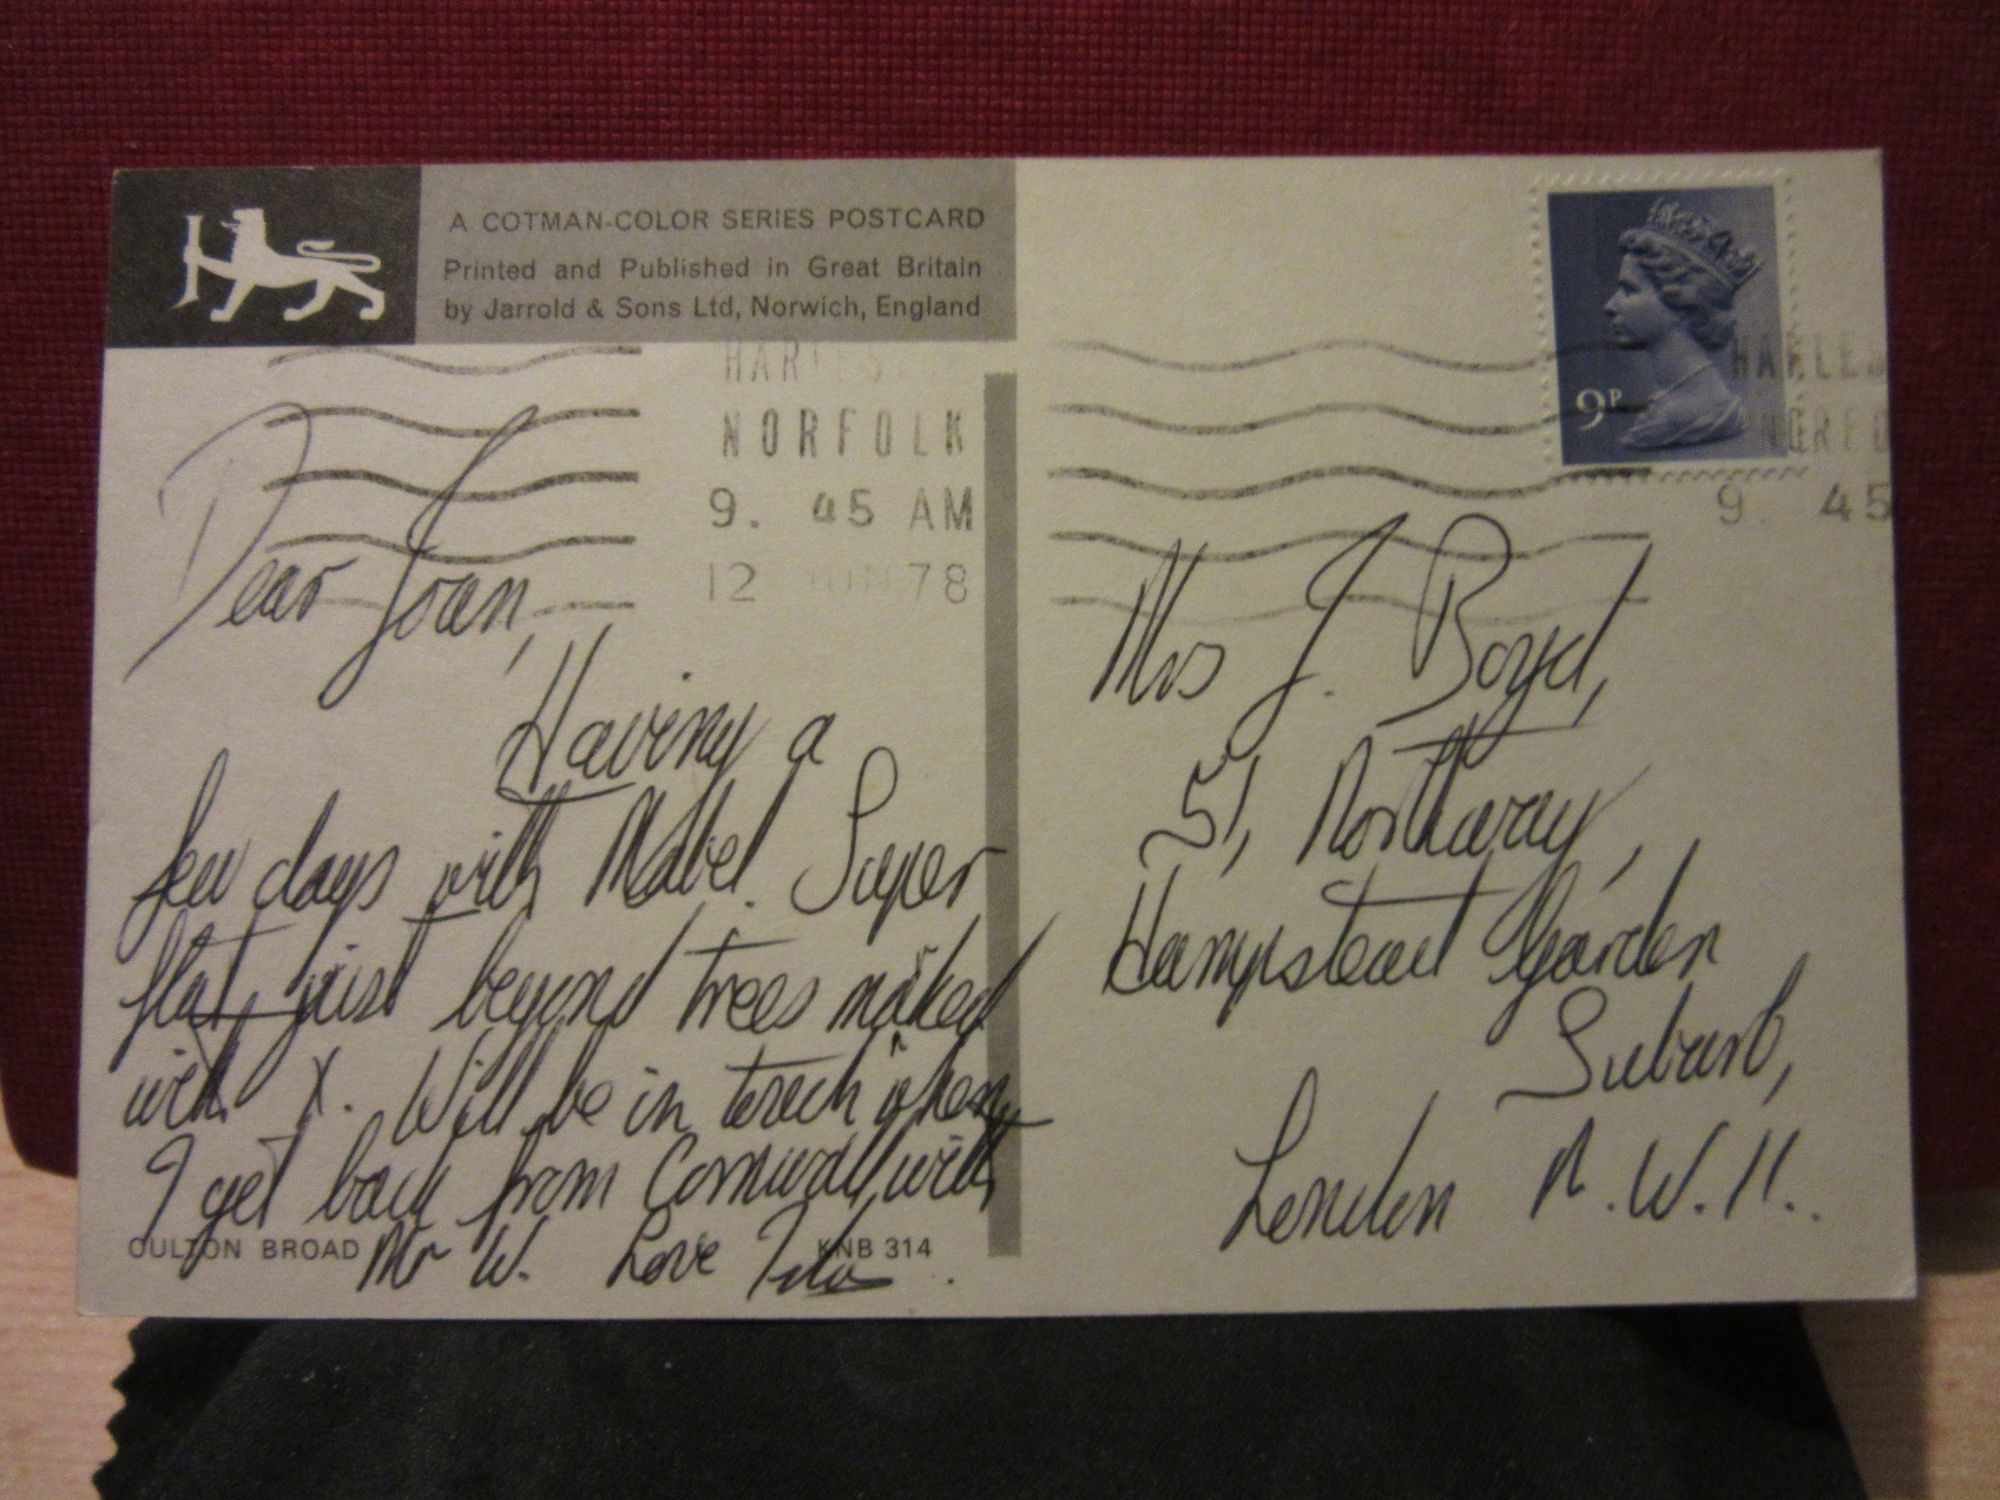 A COTMAN-COLOR SERIES POSTCARD
Printed and Published in Great Britain
by Jarrold & Sons Ltd, Norwich, England
NORFOLK
9. 45 AM
12 JUN 78
Dear Joan,
Having a
few days with Mabel. Super
flat just beyond trees marked
with X. Will be in touch when
I get back from Cornwall, with
Mr W. Love
OULTON BROAD
KNB 314
9P
HARLES
NORFO
9. 45
Mrs J. Boyd,
51, Northway,
Hampstead Garden
Suburb,
London N.W.11.